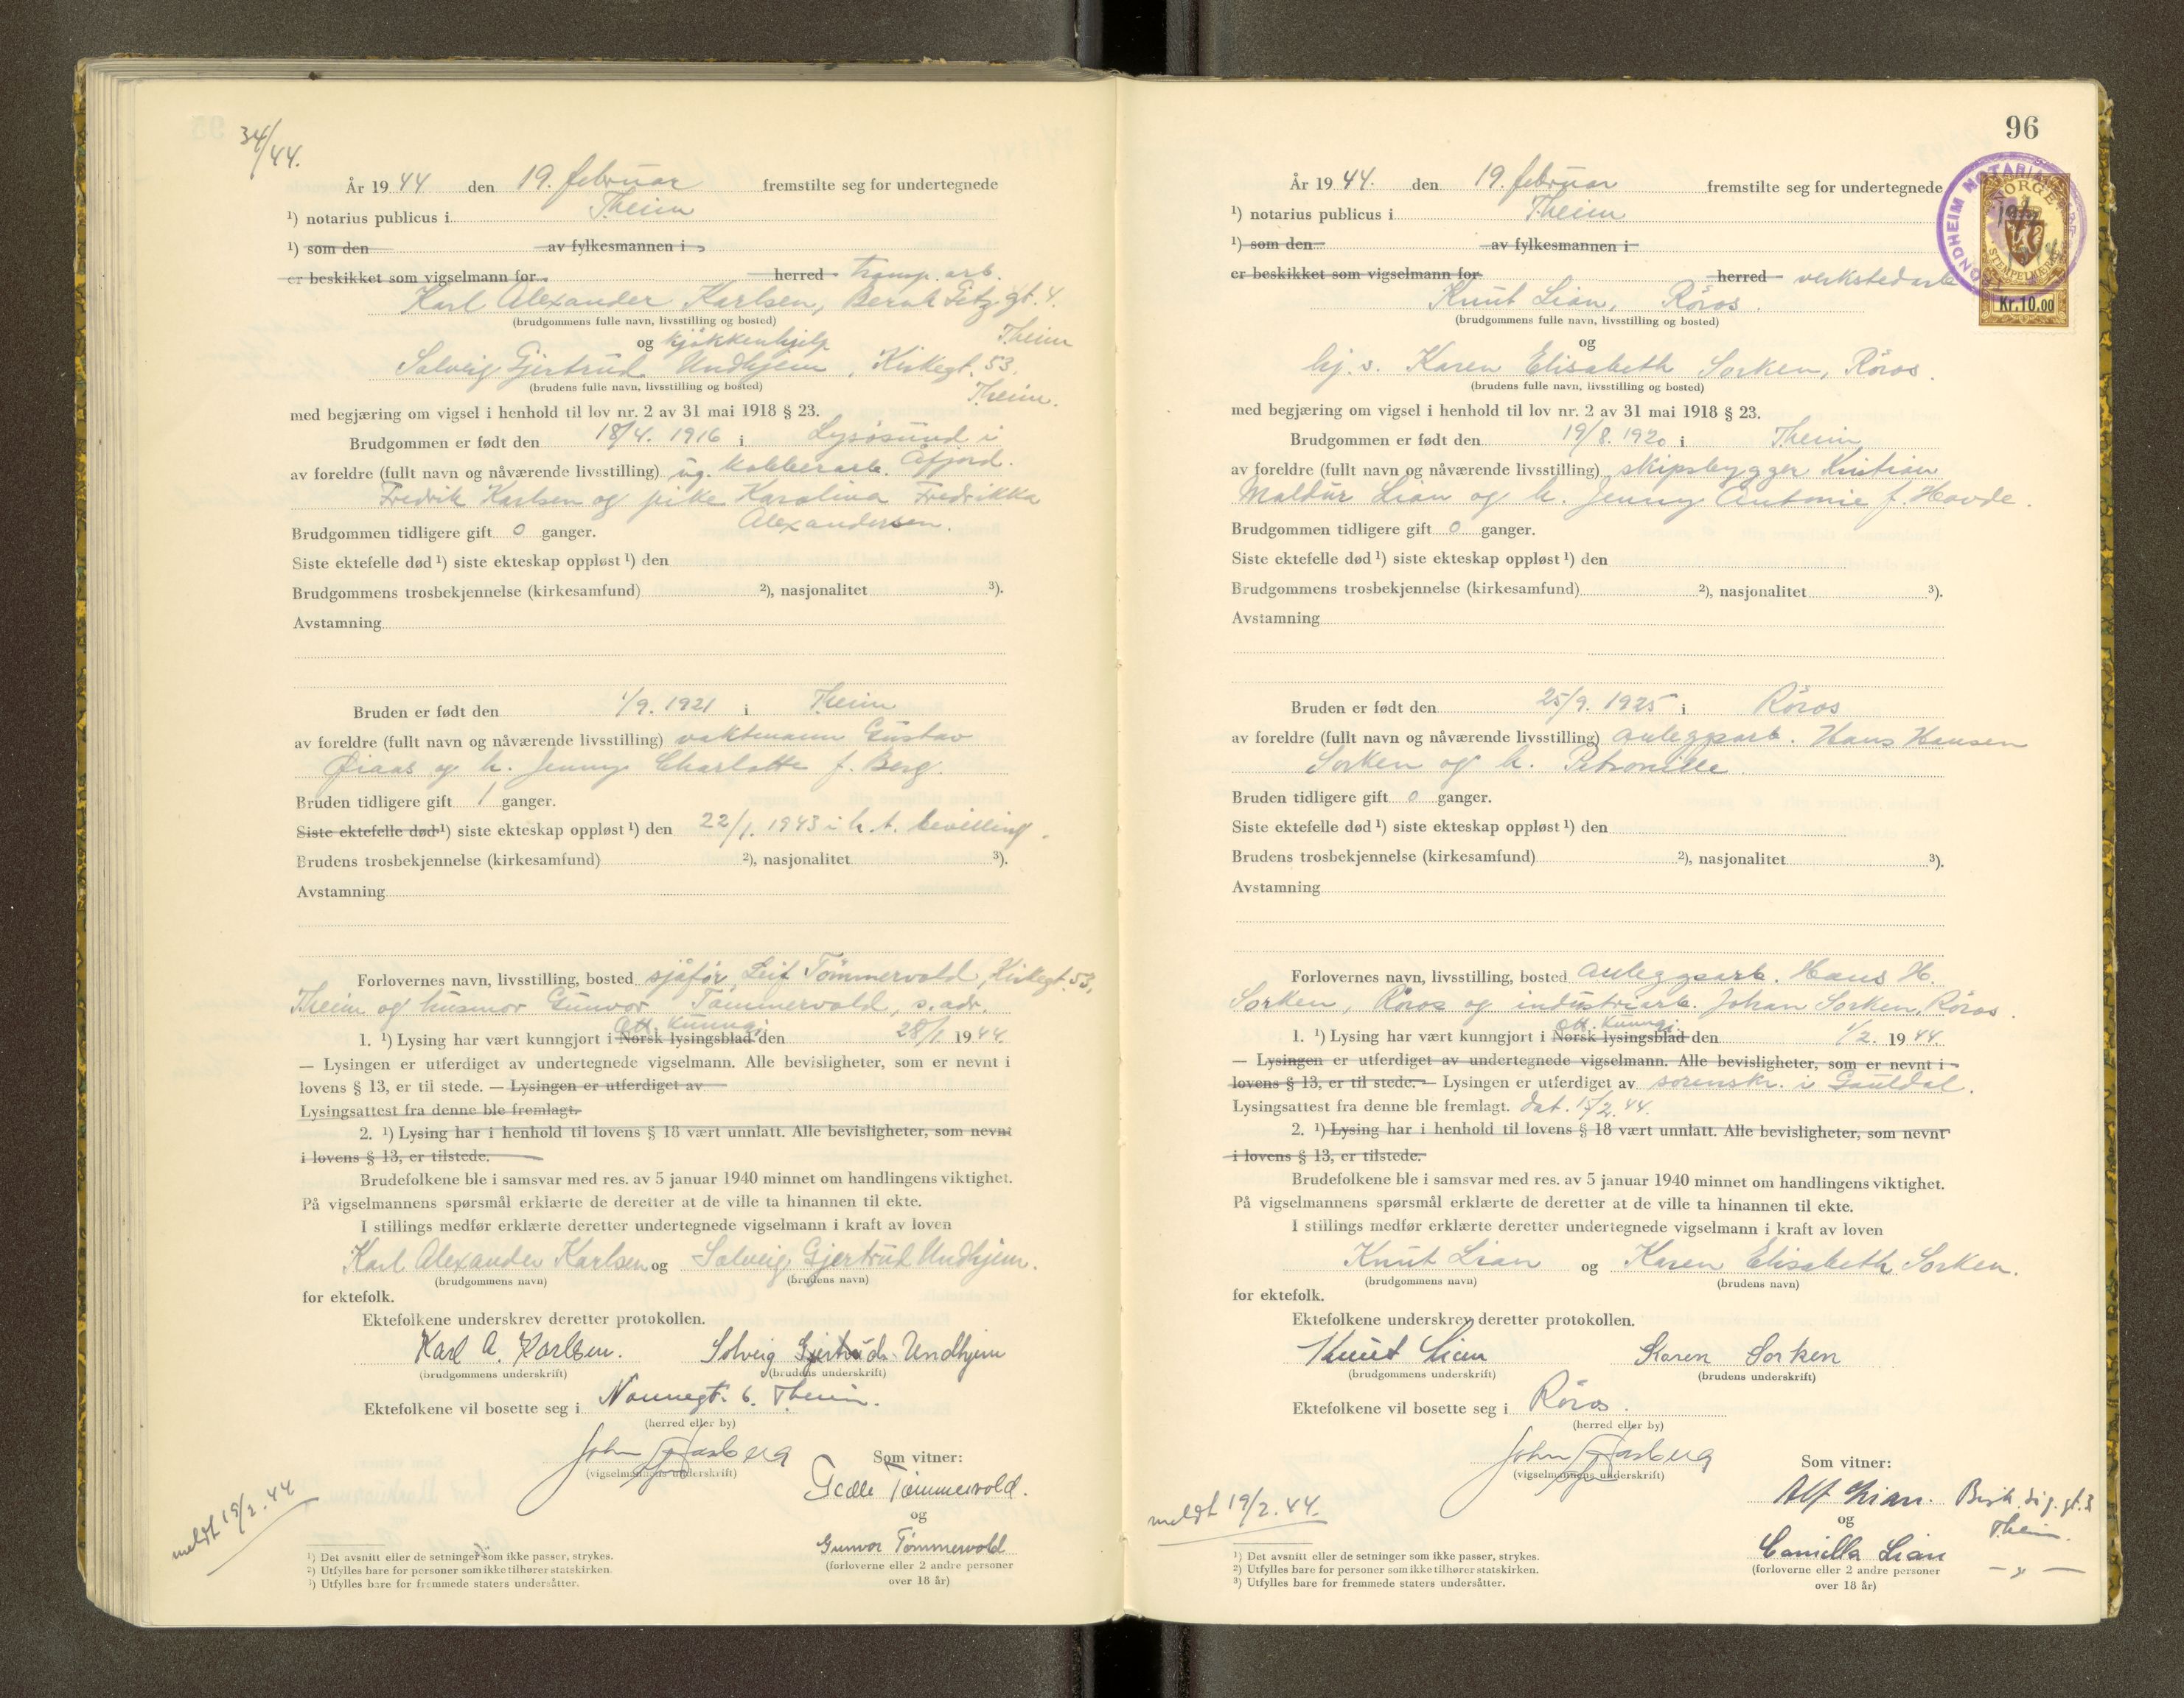 34/44.
År 19 44 den 19. februar fremstilte seg for undertegnede
¹) notarius publicus i Theim
¹) som den av fylkesmannen i
er beskikket som vigselmann for herred transp. arb.
Karl Alexander Karlsen, Bernh. Getz gt. 4.
(brudgommens fulle navn, livsstilling og bosted)
Theim
og kjøkkenhjelp
Solveig Gjertrud Undhjem, Kirkegt. 53.
(brudens fulle navn, livsstilling og bosted)
Theim.
med begjæring om vigsel i henhold til lov nr. 2 av 31 mai 1918 § 23.
Brudgommen er født den 18/4. 1916 i Lysøsund i
Åfjord.
av foreldre (fullt navn og nåværende livsstilling) ug. kobberarb.
Fredrik Karlsen og pike Karolina Fredrikka
Alexandersen.
Brudgommen tidligere gift 0 ganger.
Siste ektefelle død ¹) siste ekteskap oppløst ¹) den
Brudgommens trosbekjennelse (kirkesamfund) ²), nasjonalitet ³).
Avstamning
Bruden er født den 1/9. 1921 i Theim
av foreldre (fullt navn og nåværende livsstilling) vaktmann Gustav
Øiaas og h. Jenny Charlotte f. Berg.
Bruden tidligere gift 1 ganger.
Siste ektefelle død ¹) siste ekteskap oppløst ¹) den 22/1. 1943 i h. t. bevilling.
Brudens trosbekjennelse (kirkesamfund) ²), nasjonalitet ³).
Avstamning
Forlovernes navn, livsstilling, bosted sjåfør Leif Tömmervold, Kirkegt. 53,
Theim og husmor Gunvor Tömmervold, s. adr.
Off. kunngj.
1. ¹) Lysing har vært kunngjort i Norsk lysingsblad den 28/1. 19 44.
— Lysingen er utferdiget av undertegnede vigselmann. Alle bevisligheter, som er nevnt i
lovens § 13, er til stede. — Lysingen er utferdiget av
Lysingsattest fra denne ble fremlagt.
2. ¹) Lysing har i henhold til lovens § 18 vært unnlatt. Alle bevisligheter, som nevnt
i lovens § 13, er tilstede.
Brudefolkene ble i samsvar med res. av 5 januar 1940 minnet om handlingens viktighet.
På vigselmannens spørsmål erklærte de deretter at de ville ta hinannen til ekte.
I stillings medfør erklærte deretter undertegnede vigselmann i kraft av loven
Karl Alexander Karlsen og Solveig Gjertrud Undhjem.
(brudgommens navn) (brudens navn)
for ektefolk.
Ektefolkene underskrev deretter protokollen.
Karl A. Karlsen. Solveig Gjertruds Undhjem
(brudgommens underskrift) (brudens underskrift)
Ektefolkene vil bosette seg i Nonnegt. 6. Theim.
(herred eller by)
John Aasberg
(vigselmannens underskrift)
Som vitner:
Tømmervold.
og
Gunvor Tømmervold
(forloverne eller 2 andre personer
over 18 år)
meldt 19/2. 44
¹) Det avsnitt eller de setninger som ikke passer, strykes.
²) Utfylles bare for personer som ikke tilhører statskirken.
³) Utfylles bare for fremmede staters undersåtter.
96
TRONDHEIM NOTARIAT
NORGE
STEMPELMERKE
Kr. 10.00
År 19 44. den 19. februar fremstilte seg for undertegnede
¹) notarius publicus i Theim
¹) som den av fylkesmannen i
er beskikket som vigselmann for herred verkstedarb
Knut Lian, Röros.
(brudgommens fulle navn, livsstilling og bosted)
og
hj. v. Karen Elisabeth Sorken, Röros.
(brudens fulle navn, livsstilling og bosted)
med begjæring om vigsel i henhold til lov nr. 2 av 31 mai 1918 § 23.
Brudgommen er født den 19/8. 1920 i Theim
av foreldre (fullt navn og nåværende livsstilling) skipsbygger Kristian
Maldur Lian og h. Jenny Antonie f. Hovde.
Brudgommen tidligere gift 0 ganger.
Siste ektefelle død ¹) siste ekteskap oppløst ¹) den
Brudgommens trosbekjennelse (kirkesamfund) ²), nasjonalitet ³).
Avstamning
Bruden er født den 25/9. 1925 i Röros
av foreldre (fullt navn og nåværende livsstilling) anleggsarb. Hans Hansen
Sorken og h. Petronelle.
Bruden tidligere gift 0 ganger.
Siste ektefelle død ¹) siste ekteskap oppløst ¹) den
Brudens trosbekjennelse (kirkesamfund) ²), nasjonalitet ³).
Avstamning
Forlovernes navn, livsstilling, bosted anleggsarb. Hans H.
Sorken, Röros og industriarb. Johan Sorken, Röros.
Off. kunngj.
1. ¹) Lysing har vært kunngjort i Norsk lysingsblad den 1/2. 19 44.
— Lysingen er utferdiget av undertegnede vigselmann. Alle bevisligheter, som er nevnt i
lovens § 13, er til stede. — Lysingen er utferdiget av sorenskr. i Gauldal.
Lysingsattest fra denne ble fremlagt. dat. 15/2. 44.
2. ¹) Lysing har i henhold til lovens § 18 vært unnlatt. Alle bevisligheter, som nevnt
i lovens § 13, er tilstede.
Brudefolkene ble i samsvar med res. av 5 januar 1940 minnet om handlingens viktighet.
På vigselmannens spørsmål erklærte de deretter at de ville ta hinannen til ekte.
I stillings medfør erklærte deretter undertegnede vigselmann i kraft av loven
Knut Lian og Karen Elisabeth Sorken.
(brudgommens navn) (brudens navn)
for ektefolk.
Ektefolkene underskrev deretter protokollen.
Knut Lian Karen Sorken
(brudgommens underskrift) (brudens underskrift)
Ektefolkene vil bosette seg i Röros.
(herred eller by)
John Aasberg
(vigselmannens underskrift)
Som vitner:
Alf Lian. gt. 3
og Theim.
Camilla Lian — " —
(forloverne eller 2 andre personer
over 18 år)
meldt 19/2. 44.
¹) Det avsnitt eller de setninger som ikke passer, strykes.
²) Utfylles bare for personer som ikke tilhører statskirken.
³) Utfylles bare for fremmede staters undersåtter.